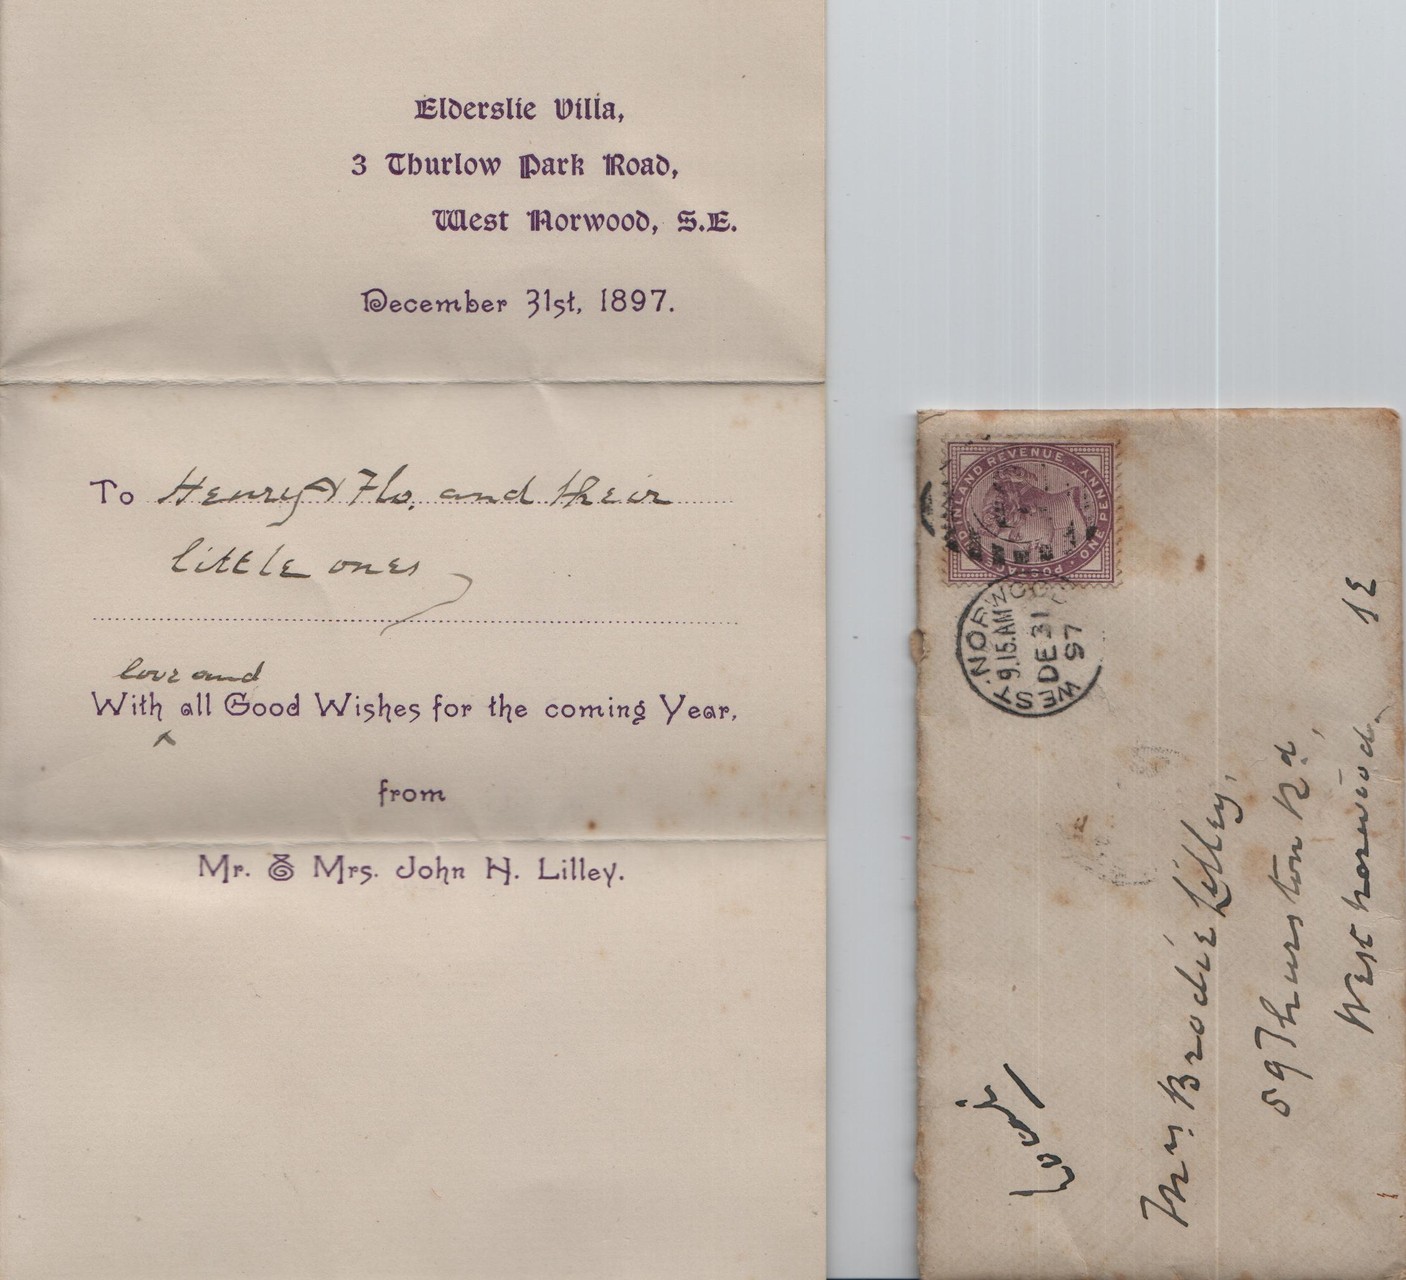 Elderslie Villa,
3 Thurlow Park Road,
West Norwood, S.E.
December 31st, 1897.
To Henry & Flo, and their
little ones
love and
With ^ all Good Wishes for the coming Year,
from
Mr. & Mrs. John H. Lilley.
POSTAGE AND INLAND REVENUE · ONE PENNY
WEST NORWOOD
9.15.AM
DE 31
97
Brodie Lilley,
59 Thurston Rd,
West Norwood,
SE